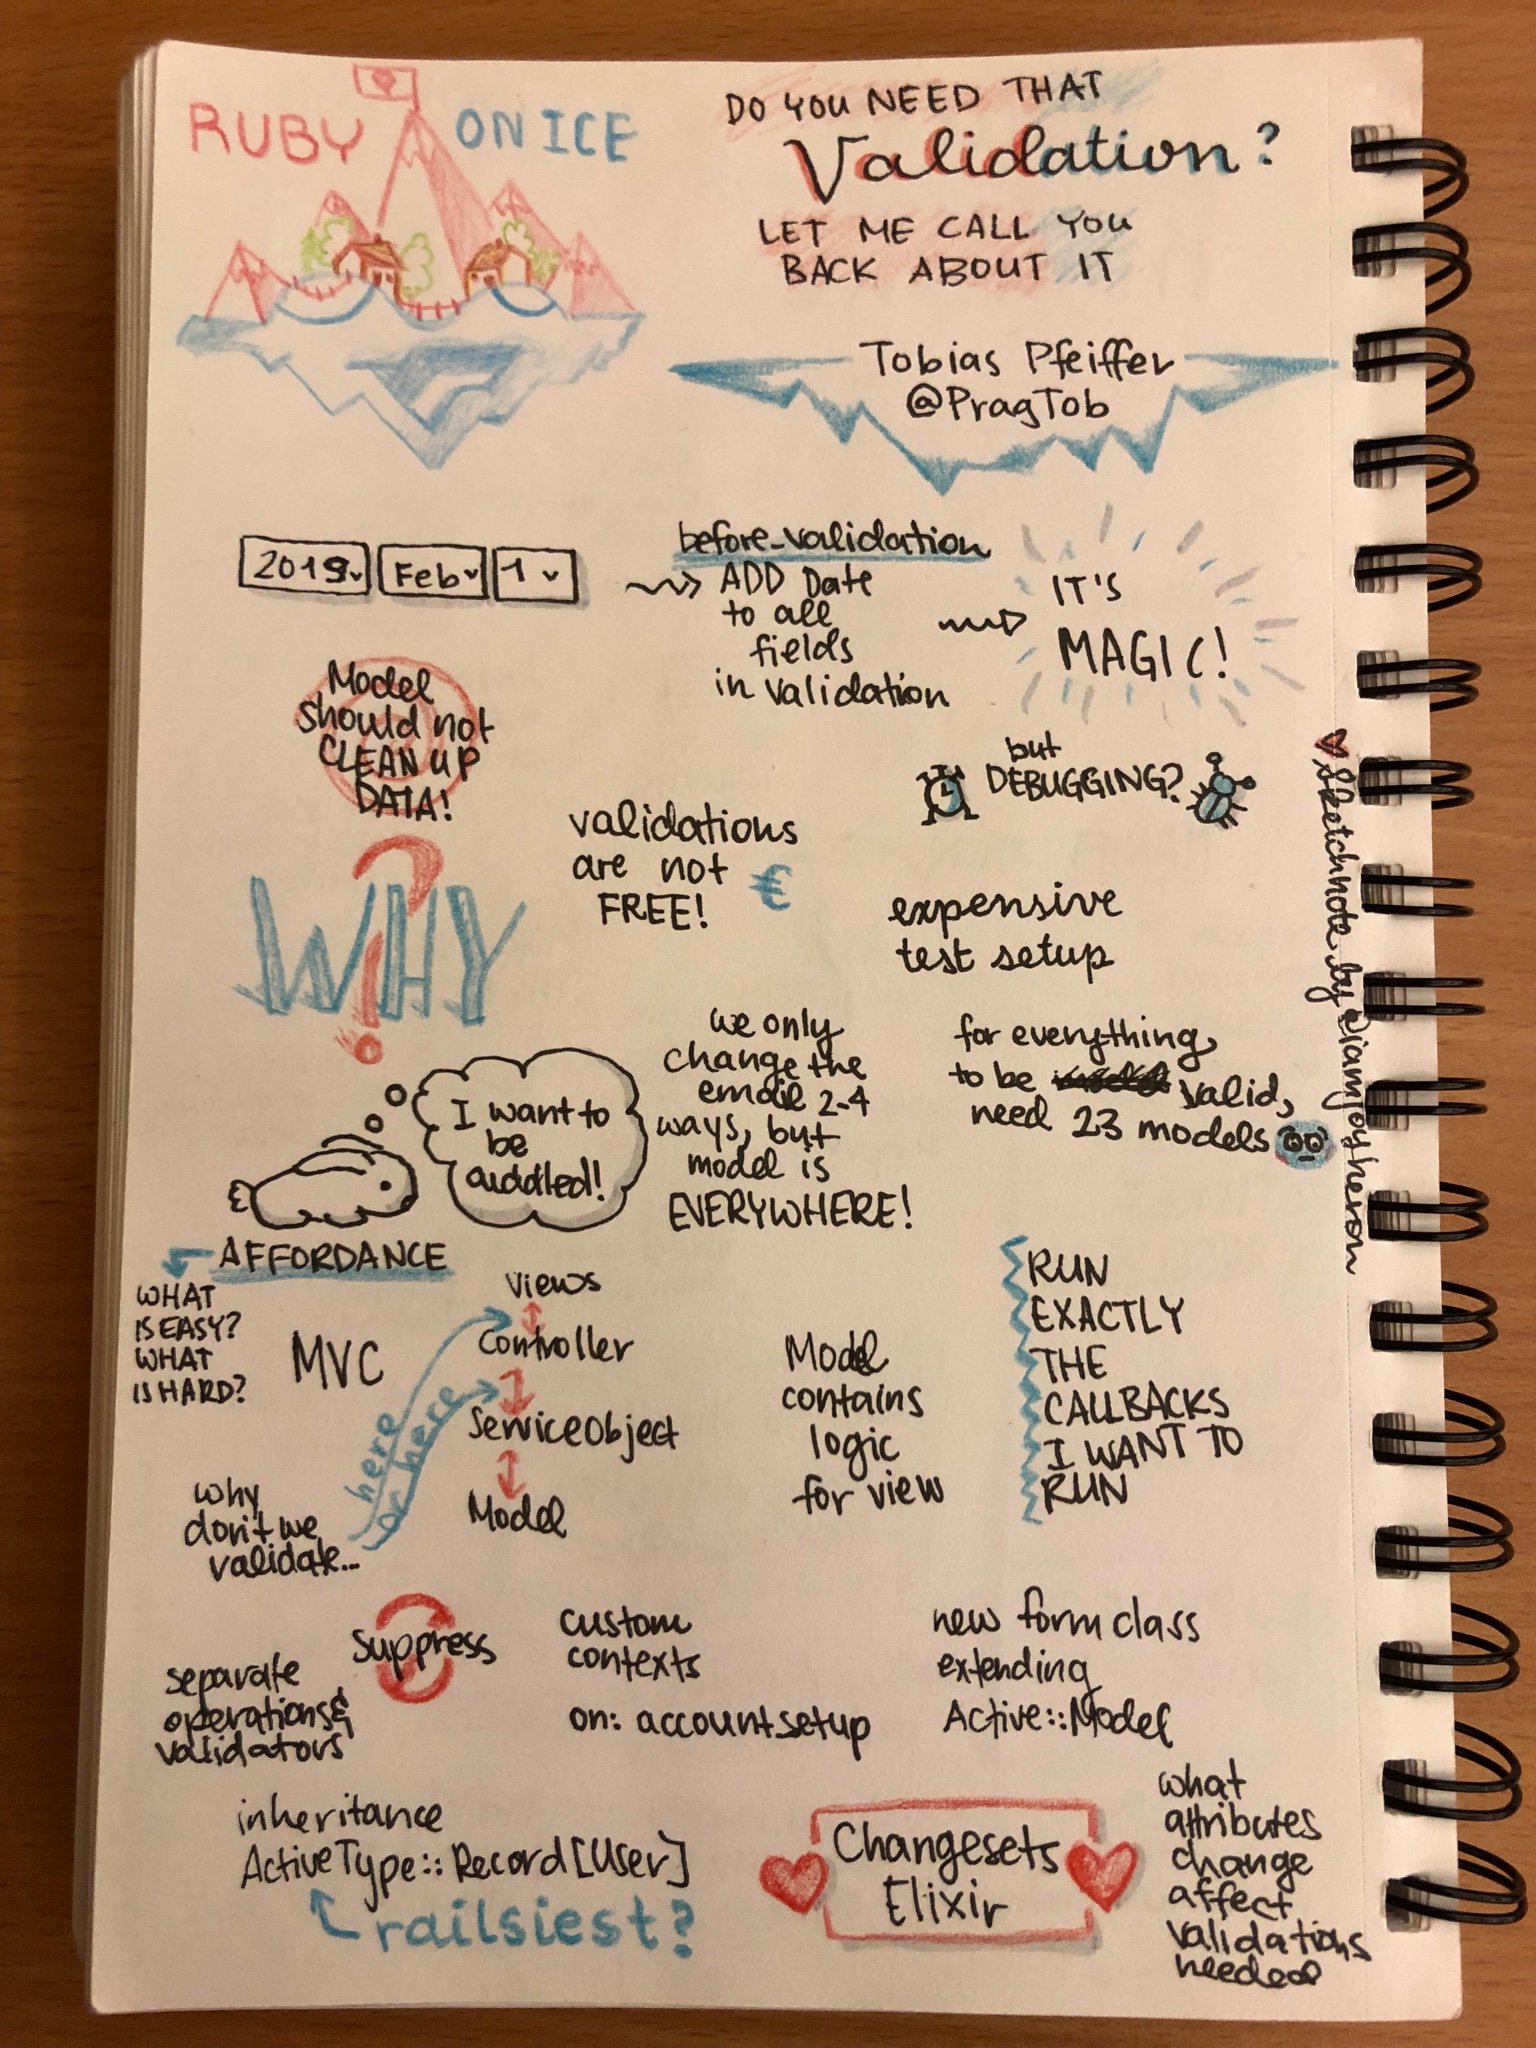 RUBY ON ICE
DO YOU NEED THAT
Validation?
LET ME CALL YOU
BACK ABOUT IT
Tobias Pfeiffer
@PragTob
2019 Feb 1
before_validation
ADD Date
to all
fields
in validation
IT'S
MAGIC!
Model
should not
CLEAN UP
DATA!
but
DEBUGGING?
validations
are not
FREE! €
WHY
?!
expensive
test setup
we only
change the
email 2-4
ways, but
model is
EVERYWHERE!
for everything
to be valid,
need 23 models
I want to
be
cuddled!
AFFORDANCE
WHAT
IS EASY?
WHAT
IS HARD?
MVC
views
Controller
ServiceObject
Model
here
or here
why
don't we
validate...
Model
contains
logic
for view
RUN
EXACTLY
THE
CALLBACKS
I WANT TO
RUN
Suppress
separate
operations &
validators
custom
contexts
on: accountsetup
new form class
extending
Active::Model
inheritance
ActiveType::Record[User]
railsiest?
Changesets
Elixir
what
attributes
change
affect
validations
needed
Sketchnote by @iamjoyheron